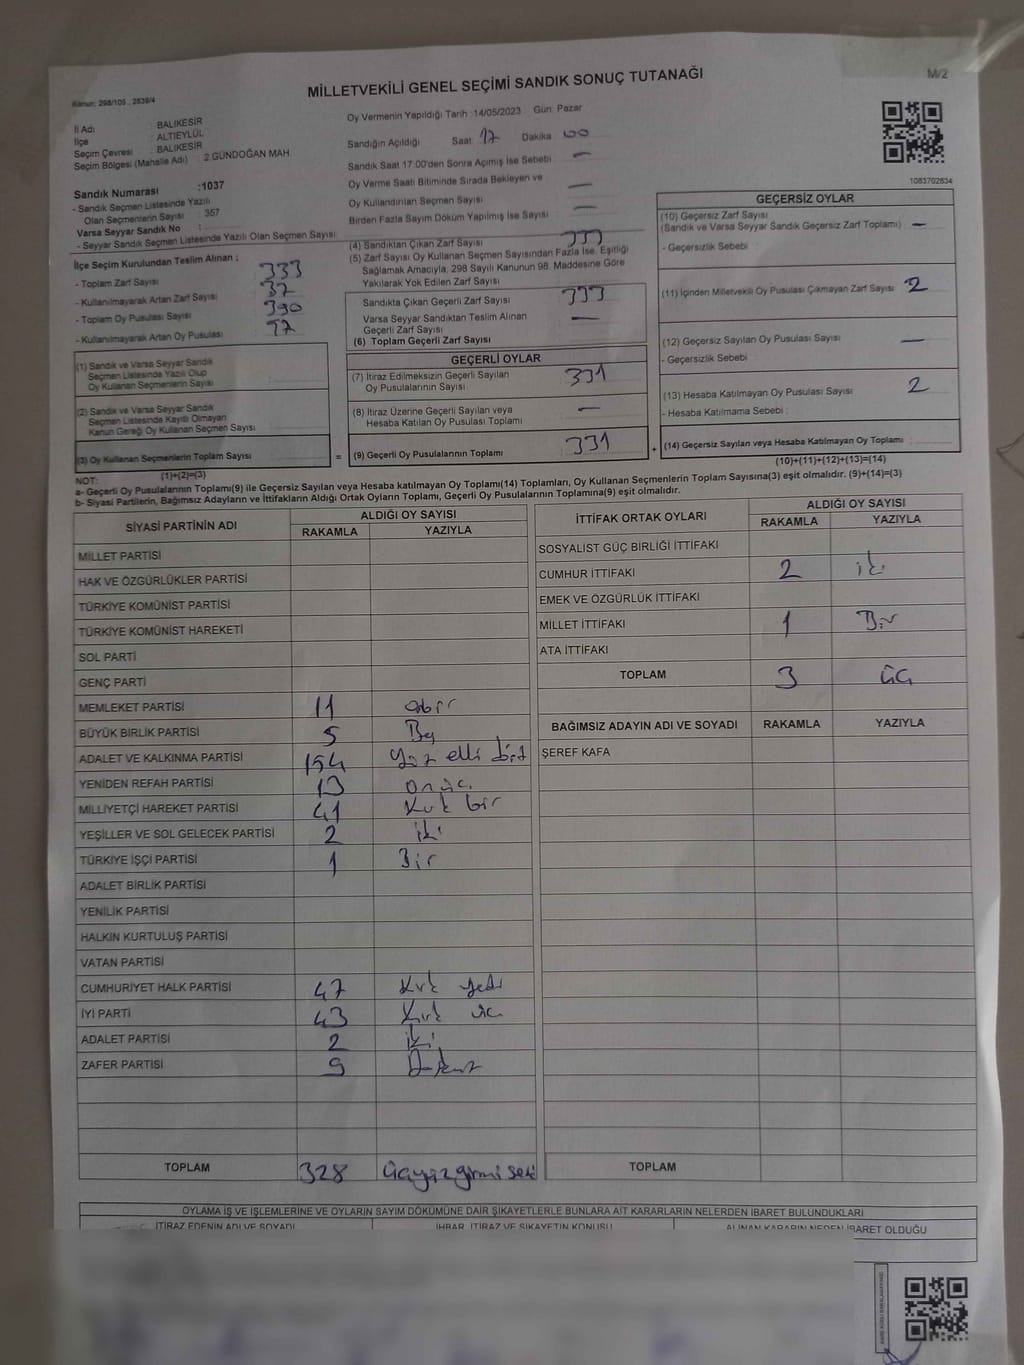 MİLLETVEKİLİ GENEL SEÇİMİ SANDIK SONUÇ TUTANAĞI
M/2
Kanun: 298/105 , 2839/4
İl Adı : BALIKESİR
İlçe : ALTIEYLÜL
Seçim Çevresi : BALIKESİR
Seçim Bölgesi (Mahalle Adı) : 2 GÜNDOĞAN MAH.
Sandık Numarası :1037
- Sandık Seçmen Listesinde Yazılı
Olan Seçmenlerin Sayısı : 357
Varsa Seyyar Sandık No :
- Seyyar Sandık Seçmen Listesinde Yazılı Olan Seçmen Sayısı
İlçe Seçim Kurulundan Teslim Alınan :
- Toplam Zarf Sayısı
- Kullanılmayarak Artan Zarf Sayısı 37
- Toplam Oy Pusulası Sayısı 390
- Kullanılmayarak Artan Oy Pusulası
(1) Sandık ve Varsa Seyyar Sandık
Seçmen Listesinde Yazılı Olup
Oy Kullanan Seçmenlerin Sayısı
(2) Sandık ve Varsa Seyyar Sandık
Seçmen Listesinde Kayıtlı Olmayan
Kanun Gereği Oy Kullanan Seçmen Sayısı
(3) Oy Kullanan Seçmenlerin Toplam Sayısı
(1)+(2)=(3)
Oy Vermenin Yapıldığı Tarih :14/05/2023 Gün: Pazar
Sandığın Açıldığı Saat 17 Dakika 00
Sandık Saat 17:00'den Sonra Açılmış İse Sebebi: —
Oy Verme Saati Bitiminde Sırada Bekleyen ve
Oy Kullandırılan Seçmen Sayısı —
Birden Fazla Sayım Döküm Yapılmış İse Sayısı —
(4) Sandıktan Çıkan Zarf Sayısı 333
(5) Zarf Sayısı Oy Kullanan Seçmen Sayısından Fazla İse, Eşitliği
Sağlamak Amacıyla, 298 Sayılı Kanunun 98. Maddesine Göre
Yakılarak Yok Edilen Zarf Sayısı
Sandıkta Çıkan Geçerli Zarf Sayısı 333
Varsa Seyyar Sandıktan Teslim Alınan
Geçerli Zarf Sayısı —
(6) Toplam Geçerli Zarf Sayısı
GEÇERLİ OYLAR
(7) İtiraz Edilmeksizin Geçerli Sayılan
Oy Pusulalarının Sayısı 331
(8) İtiraz Üzerine Geçerli Sayılan veya
Hesaba Katılan Oy Pusulası Toplamı —
= (9) Geçerli Oy Pusulalarının Toplamı 331 +
1083702834
GEÇERSİZ OYLAR
(10) Geçersiz Zarf Sayısı
(Sandık ve Varsa Seyyar Sandık Geçersiz Zarf Toplamı) —
- Geçersizlik Sebebi :
(11) İçinden Milletvekili Oy Pusulası Çıkmayan Zarf Sayısı 2
(12) Geçersiz Sayılan Oy Pusulası Sayısı —
- Geçersizlik Sebebi
(13) Hesaba Katılmayan Oy Pusulası Sayısı 2
- Hesaba Katılmama Sebebi :
(14) Geçersiz Sayılan veya Hesaba Katılmayan Oy Toplamı :
(10)+(11)+(12)+(13)=(14)
NOT:
a- Geçerli Oy Pusulalarının Toplamı(9) ile Geçersiz Sayılan veya Hesaba katılmayan Oy Toplamı(14) Toplamları, Oy Kullanan Seçmenlerin Toplam Sayısına(3) eşit olmalıdır. (9)+(14)=(3)
b- Siyasi Partilerin, Bağımsız Adayların ve İttifakların Aldığı Ortak Oyların Toplamı, Geçerli Oy Pusulalarının Toplamına(9) eşit olmalıdır.
SİYASİ PARTİNİN ADI ALDIĞI OY SAYISI
RAKAMLA YAZIYLA
MİLLET PARTİSİ
HAK VE ÖZGÜRLÜKLER PARTİSİ
TÜRKİYE KOMÜNİST PARTİSİ
TÜRKİYE KOMÜNİST HAREKETİ
SOL PARTİ
GENÇ PARTİ
MEMLEKET PARTİSİ 11 onbir
BÜYÜK BİRLİK PARTİSİ 5 Beş
ADALET VE KALKINMA PARTİSİ 154 Yüz elli
YENİDEN REFAH PARTİSİ 13 onüç
MİLLİYETÇİ HAREKET PARTİSİ 41 Kırk bir
YEŞİLLER VE SOL GELECEK PARTİSİ 2 iki
TÜRKİYE İŞÇİ PARTİSİ 1 Bir
ADALET BİRLİK PARTİSİ
YENİLİK PARTİSİ
HALKIN KURTULUŞ PARTİSİ
VATAN PARTİSİ
CUMHURİYET HALK PARTİSİ 47 Kırk yedi
İYİ PARTİ 43 Kırk üç
ADALET PARTİSİ 2 iki
ZAFER PARTİSİ 9 Dokuz
TOPLAM 328 üçyüzyirmi sekiz
İTTİFAK ORTAK OYLARI ALDIĞI OY SAYISI
RAKAMLA YAZIYLA
SOSYALİST GÜÇ BİRLİĞİ İTTİFAKI
CUMHUR İTTİFAKI 2 iki
EMEK VE ÖZGÜRLÜK İTTİFAKI
MİLLET İTTİFAKI 1 Bir
ATA İTTİFAKI
TOPLAM 3 üç
BAĞIMSIZ ADAYIN ADI VE SOYADI RAKAMLA YAZIYLA
ŞEREF KAFA
TOPLAM
OYLAMA İŞ VE İŞLEMLERİNE VE OYLARIN SAYIM DÖKÜMÜNE DAİR ŞİKAYETLERLE BUNLARA AİT KARARLARIN NELERDEN İBARET BULUNDUKLARI
İTİRAZ EDENİN ADI VE SOYADI İHBAR, İTİRAZ VE ŞİKAYETİN KONUSU ALINAN KARARIN NEDEN İBARET OLDUĞU